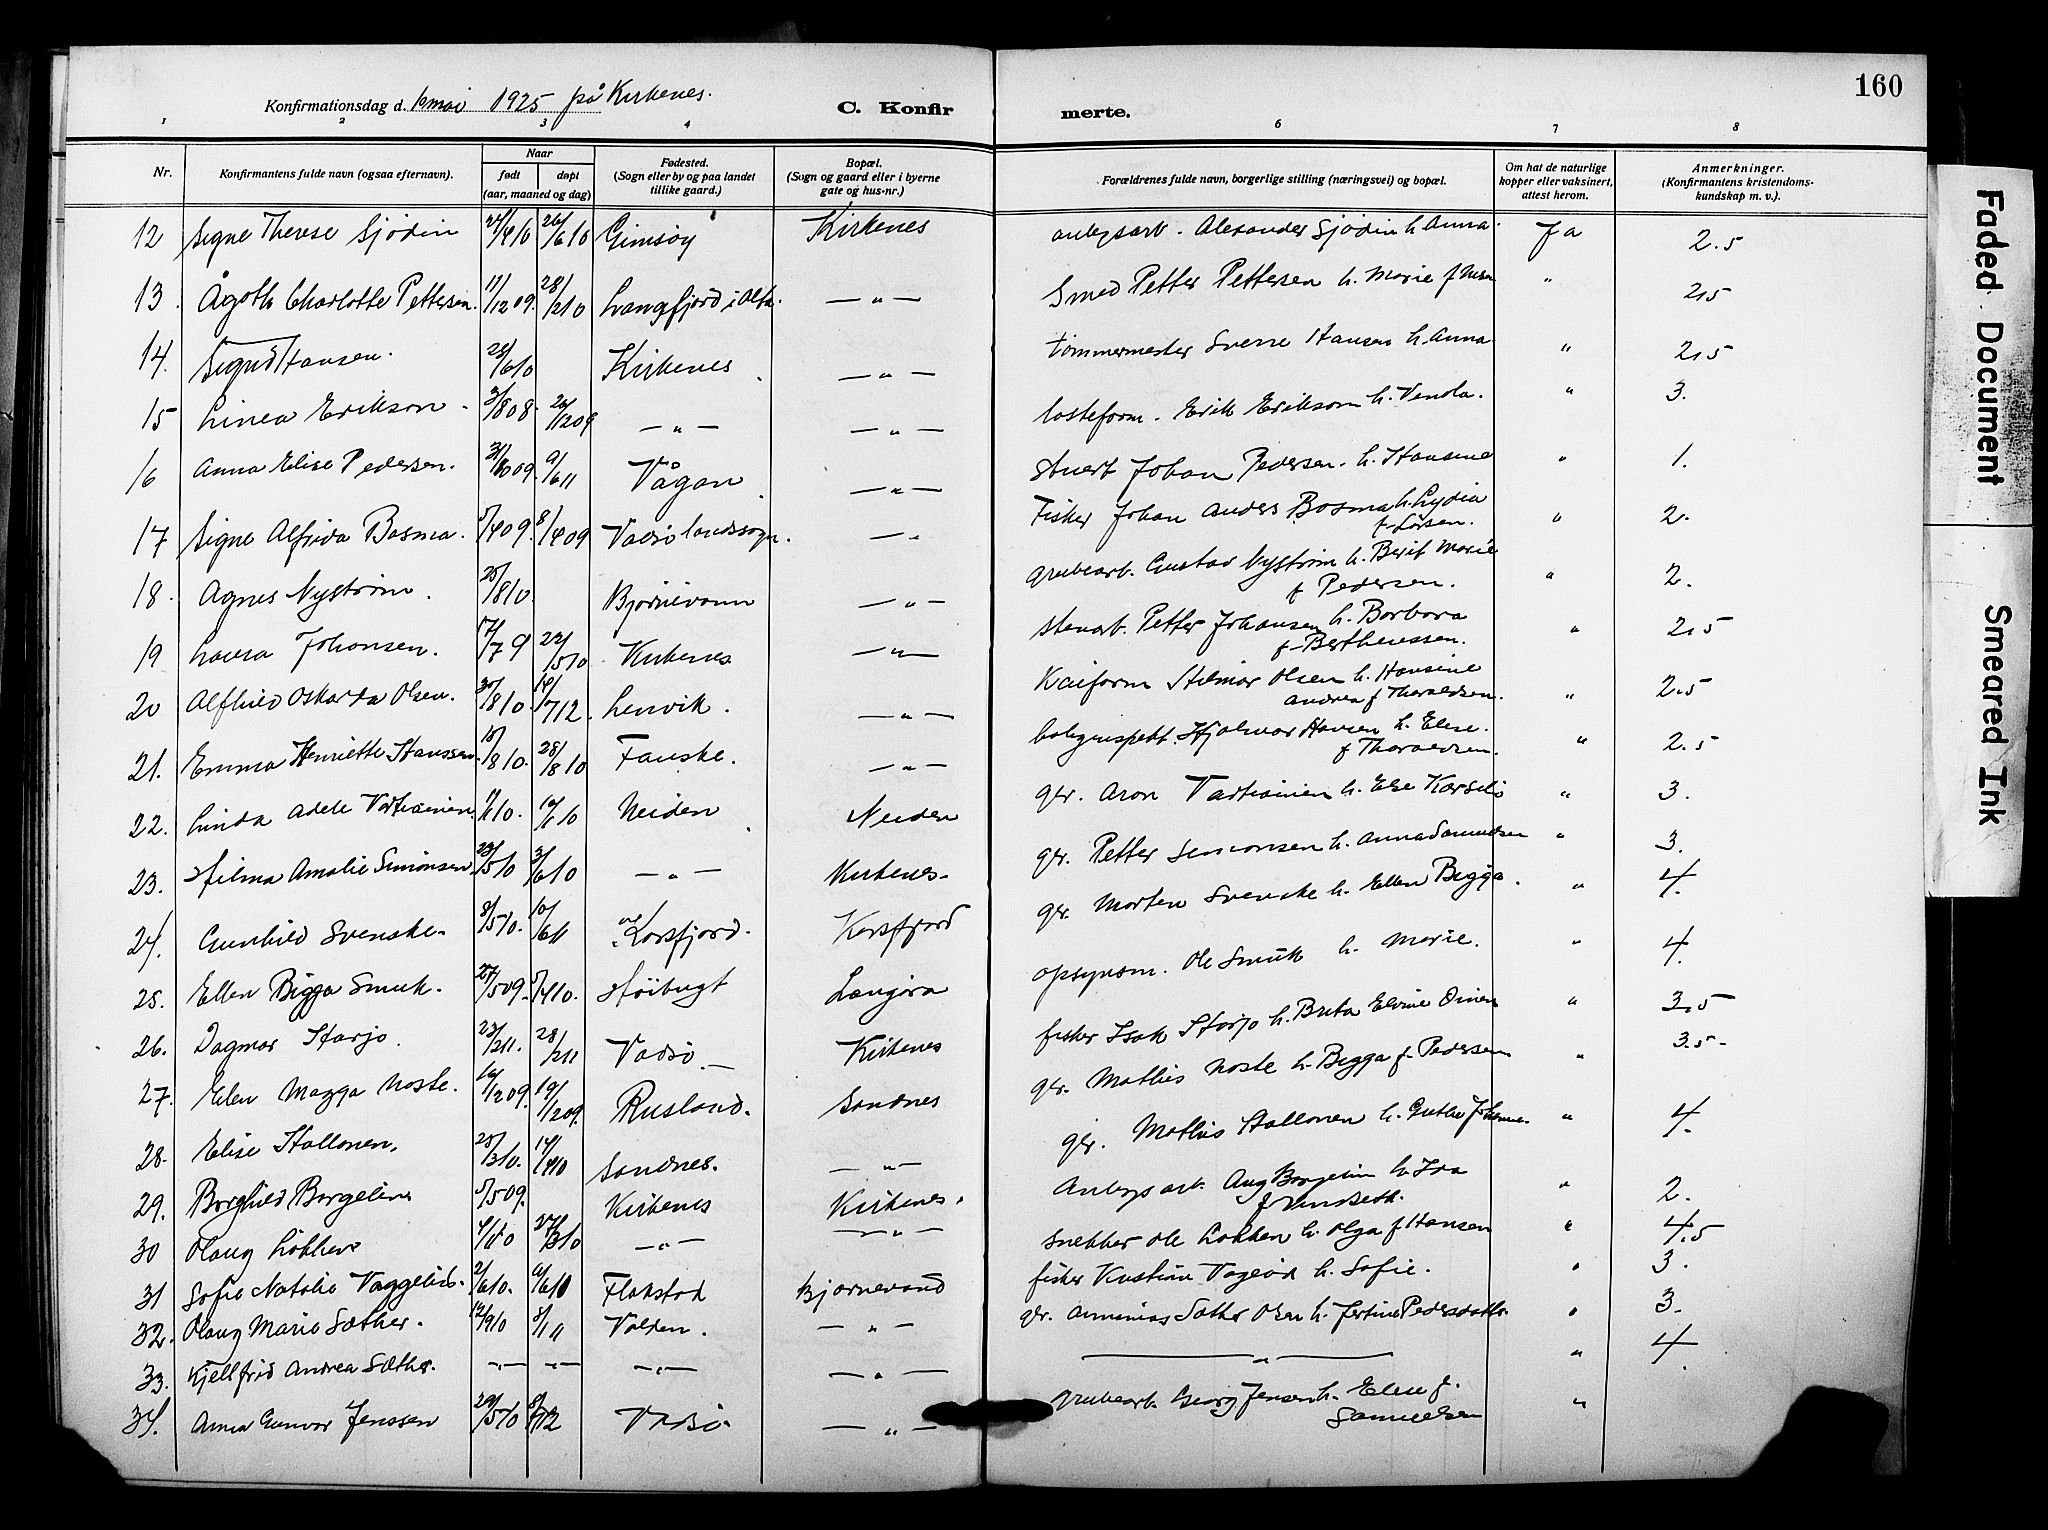 160
Konfirmationsdag d. mai 1925 på Kirkenes.
C. Konfirmerte.
1 2 3 4 6 7 8
Nr.
Konfirmantens fulde navn (ogsaa efternavn).
Naar
født døpt
(aar, maaned og dag)
Fødested.
(Sogn eller by og paa landet
tillike gaard.)
Bopæl.
(Sogn og gaard eller i byerne
gate og hus-nr.)
Forældrenes fulde navn, borgerlige stilling (næringsvei) og bopæl.
Om hat de naturlige
kopper eller vaksinert,
attest herom.
Anmerkninger.
(Konfirmantens kristendoms-
kundskap m. v.)
12 Signe Therese Sjödin 26/610 Gimsøy Kirkenes Alexander Sjödin h. Anna. Ja 2.5
13. Ågoth Charlotte Pettersen. 17/1209. 28/210 Langfjord i Alta. — " — Smed Petter Pettersen h. Marie f. " 2,5
14. Signe Hansen. 28/610 Kirkenes — " — tømmermester Sverre Hansen h. Anna " 2,5
15 Linea Erikson. 3/808. 26/1209 — " — — " — losseform. Erik Erikson h. Vendla. " 3.
16 Anna Elise Pedersen. 9/611 Vågan — " — stuert Johan Pedersen. h. Hansine " 1.
17 Signe Alfrida Bosma. 5/409. 8/409 Vadsø landssogn. — " Fisker Johan Anders Bosma h. Lydia
f. Larsen. " 2.
18. Agnes Nystrøm. 25/810. Bjørnevann — " — grubearb. Gustav Nystrøm h. Berit Marie
f. Pedersen. " 2.
19 Laura Johansen. 17/79 22/510 Kirkenes — " — stenarb. Petter Johansen h. Barbara
f. Bertheussen. " 2,5
20 Alfhild Oskarda Olsen. 30/810. 14/712. Lenvik. — " — Kaiform Hilmar Olsen h. Hansine
Andrea f. Thoraldsen. " 2.5
21. Emma Henriette Hanssen. 18/810. 28/810 Fauske. — " — Hjalmar Hansen h. Elise.
f. Thoraldsen. " 2.5
22. Linda Adele Vartiainen. Neiden Neiden gbr. Aron Vartiainen h. Else " 3.
23. Hilma Amalie Simonsen. 23/510 3/610 — " — Kirkenes. gbr. Petter Simonsen h. Anna Samuelsen " 3.
24. Gunhild Svenske. 8/510. 10/611 Korsfjord. Korsfjord gbr. Morten Svenske h. Ellen Bigga. " 4.
25. Ellen Bigga Smuk. 27/509. 5/410. Høibugt Langøra opsynsm. Ole Smuk h. Marie. " 4.
26. Dagmar Harjo. 23/211. 28/211 Vadsø — Kirkenes fisker Isak Harjo h. Brita " 3.5
27. Elen Magga Noste. 16/1209. 19/1209. Rusland. Sandnes gbr. Mathis Noste h. Bigga f. Pedersen " 3.5
28. Elise Hallonen, 25/310. 14/410 Sandnes. — " — gbr. Mathis Hallonen h. " 4.
29. Borghild Borgelin 5/509. Kirkenes Kirkenes. Aug Borgelin h. Ida " 2.
30 Olaug Løkken 27/310 — " — — " — Snekker Ole Løkken h. Olga f. Hansen " 4.5
31 Sofie Natalie 2/610. 6/610 Flakstad Bjørnevand fisker h. Sofie. " 3.
32. Olaug Marie Sæther. 17/910 8/111 Valden. — " — gbr. Sæther Olsen h. Jertine Pedersdatter " 3.
33. Kjellfrid Andrea Sæther. — " — — " — — " — — " — — " — " 4.
34. Anna Gunvor Jenssen 29/510 Vadsø — " — grubearb. Georg Jensen h. Elise f.
Samuelsen "
Faded Document
Smeared Ink